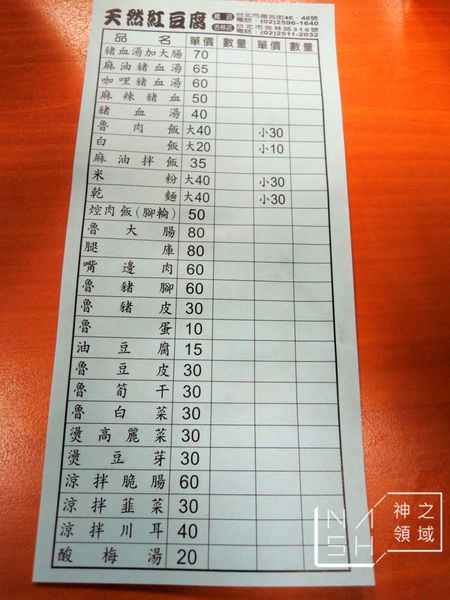 天然紅豆腐
台北市昌吉街46、48號
電話：(02)2596-1640
台北市吉林路310號
電話：(02)2511-2032
品名 單價 數量 單價 數量
豬血湯加大腸 70
麻油豬血湯 65
咖哩豬血湯 60
麻辣豬血 50
豬血湯 40
魯肉飯 大40 小30
白飯 大20 小10
麻油拌飯 35
米粉 大40 小30
乾麵 大40 小30
焢肉飯(腳輪) 50
魯大腸 80
腿庫 80
嘴邊肉 60
魯豬腳 60
魯豬皮 30
魯蛋 10
油豆腐 15
魯豆皮 30
魯筍干 30
魯白菜 30
燙高麗菜 30
燙豆芽 30
涼拌脆腸 60
涼拌韮菜 30
涼拌川耳 40
酸梅湯 20
神之領域